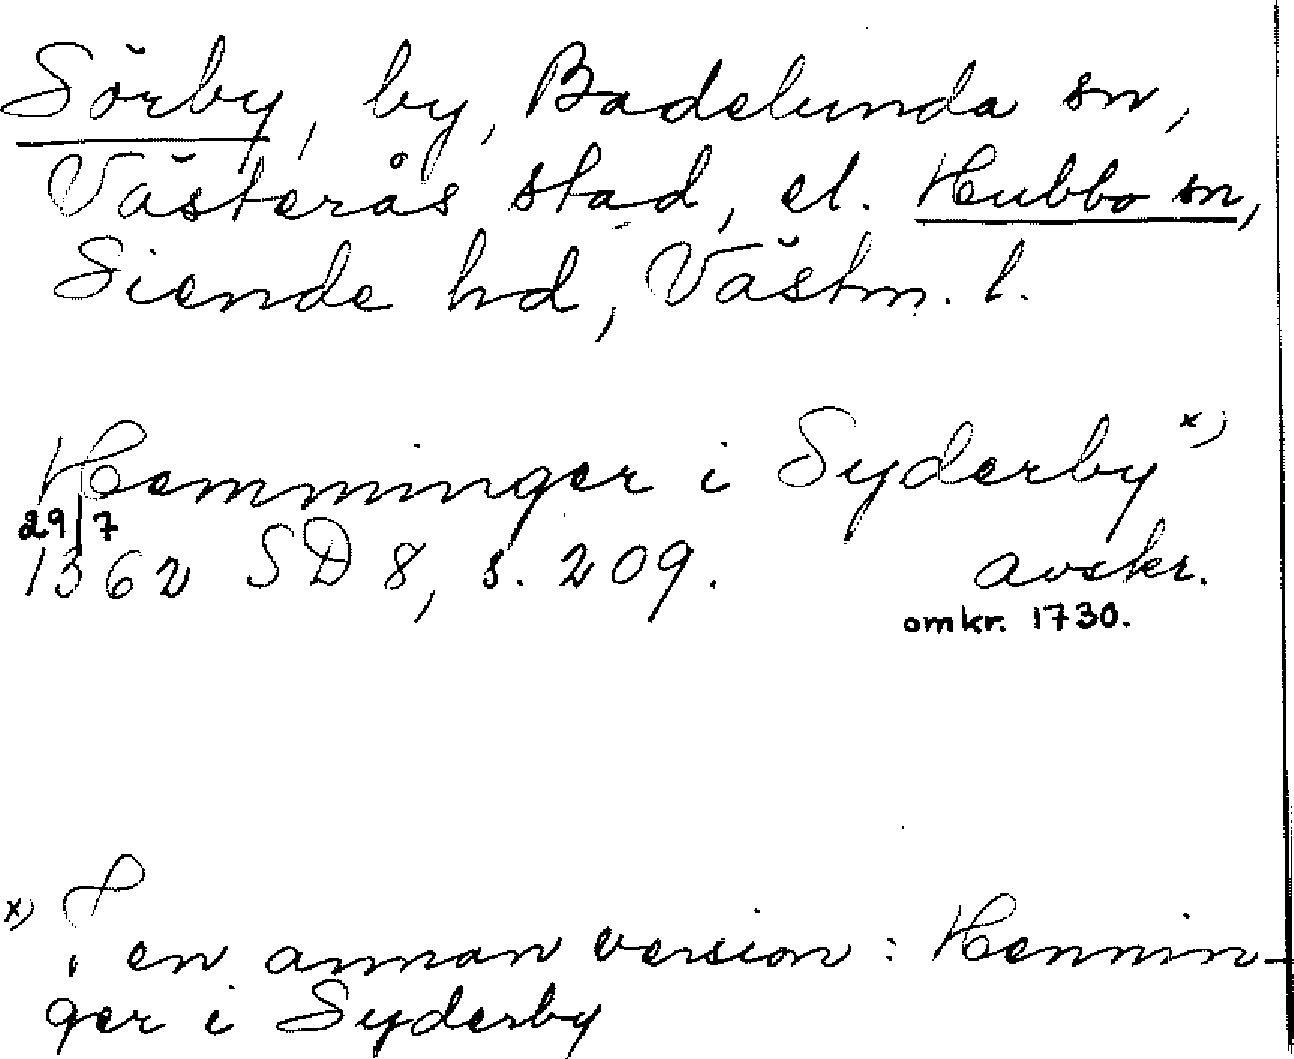 Sörby, by, Badelunda sn,
Västerås stad, el. Hubbo sn,
Siende hd, Västm. l.
Hemminger i Syderby x)
29/7
1362 SD 8, s. 209. avskr.
omkr. 1730.
x) I en annan version: Hennin-
ger i Syderby